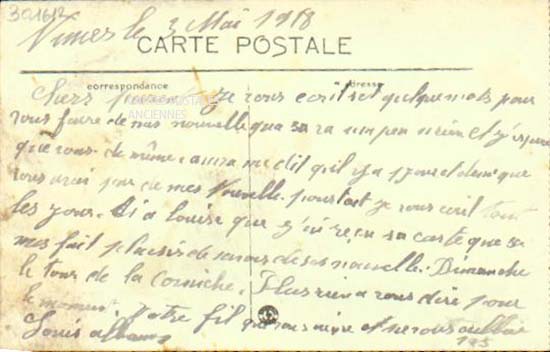 301612
Nimes le 3 Mai 1918
CARTE POSTALE
correspondance adresse
Chers parents je vous ecrit set quelque mots pour
CARTES POSTALES
ANCIENNES
vous faire de mes nouvelle qua sa va un peu mieu et j'espere
que vous de même. anna me dit qu'il y a jours et demi que
vous avai pas de mes Nouvelle. pourtant je vous ecrit tout
les jour. Di a Louise que j'ai reçu sa carte que sa
mes fait plaisir de savoir de ses nouvelle. Dimanche
le tour de la Corniche. Plus rien a vous dire pour
le moment. Votre fil que vous aime et ne vous oublie
Louis